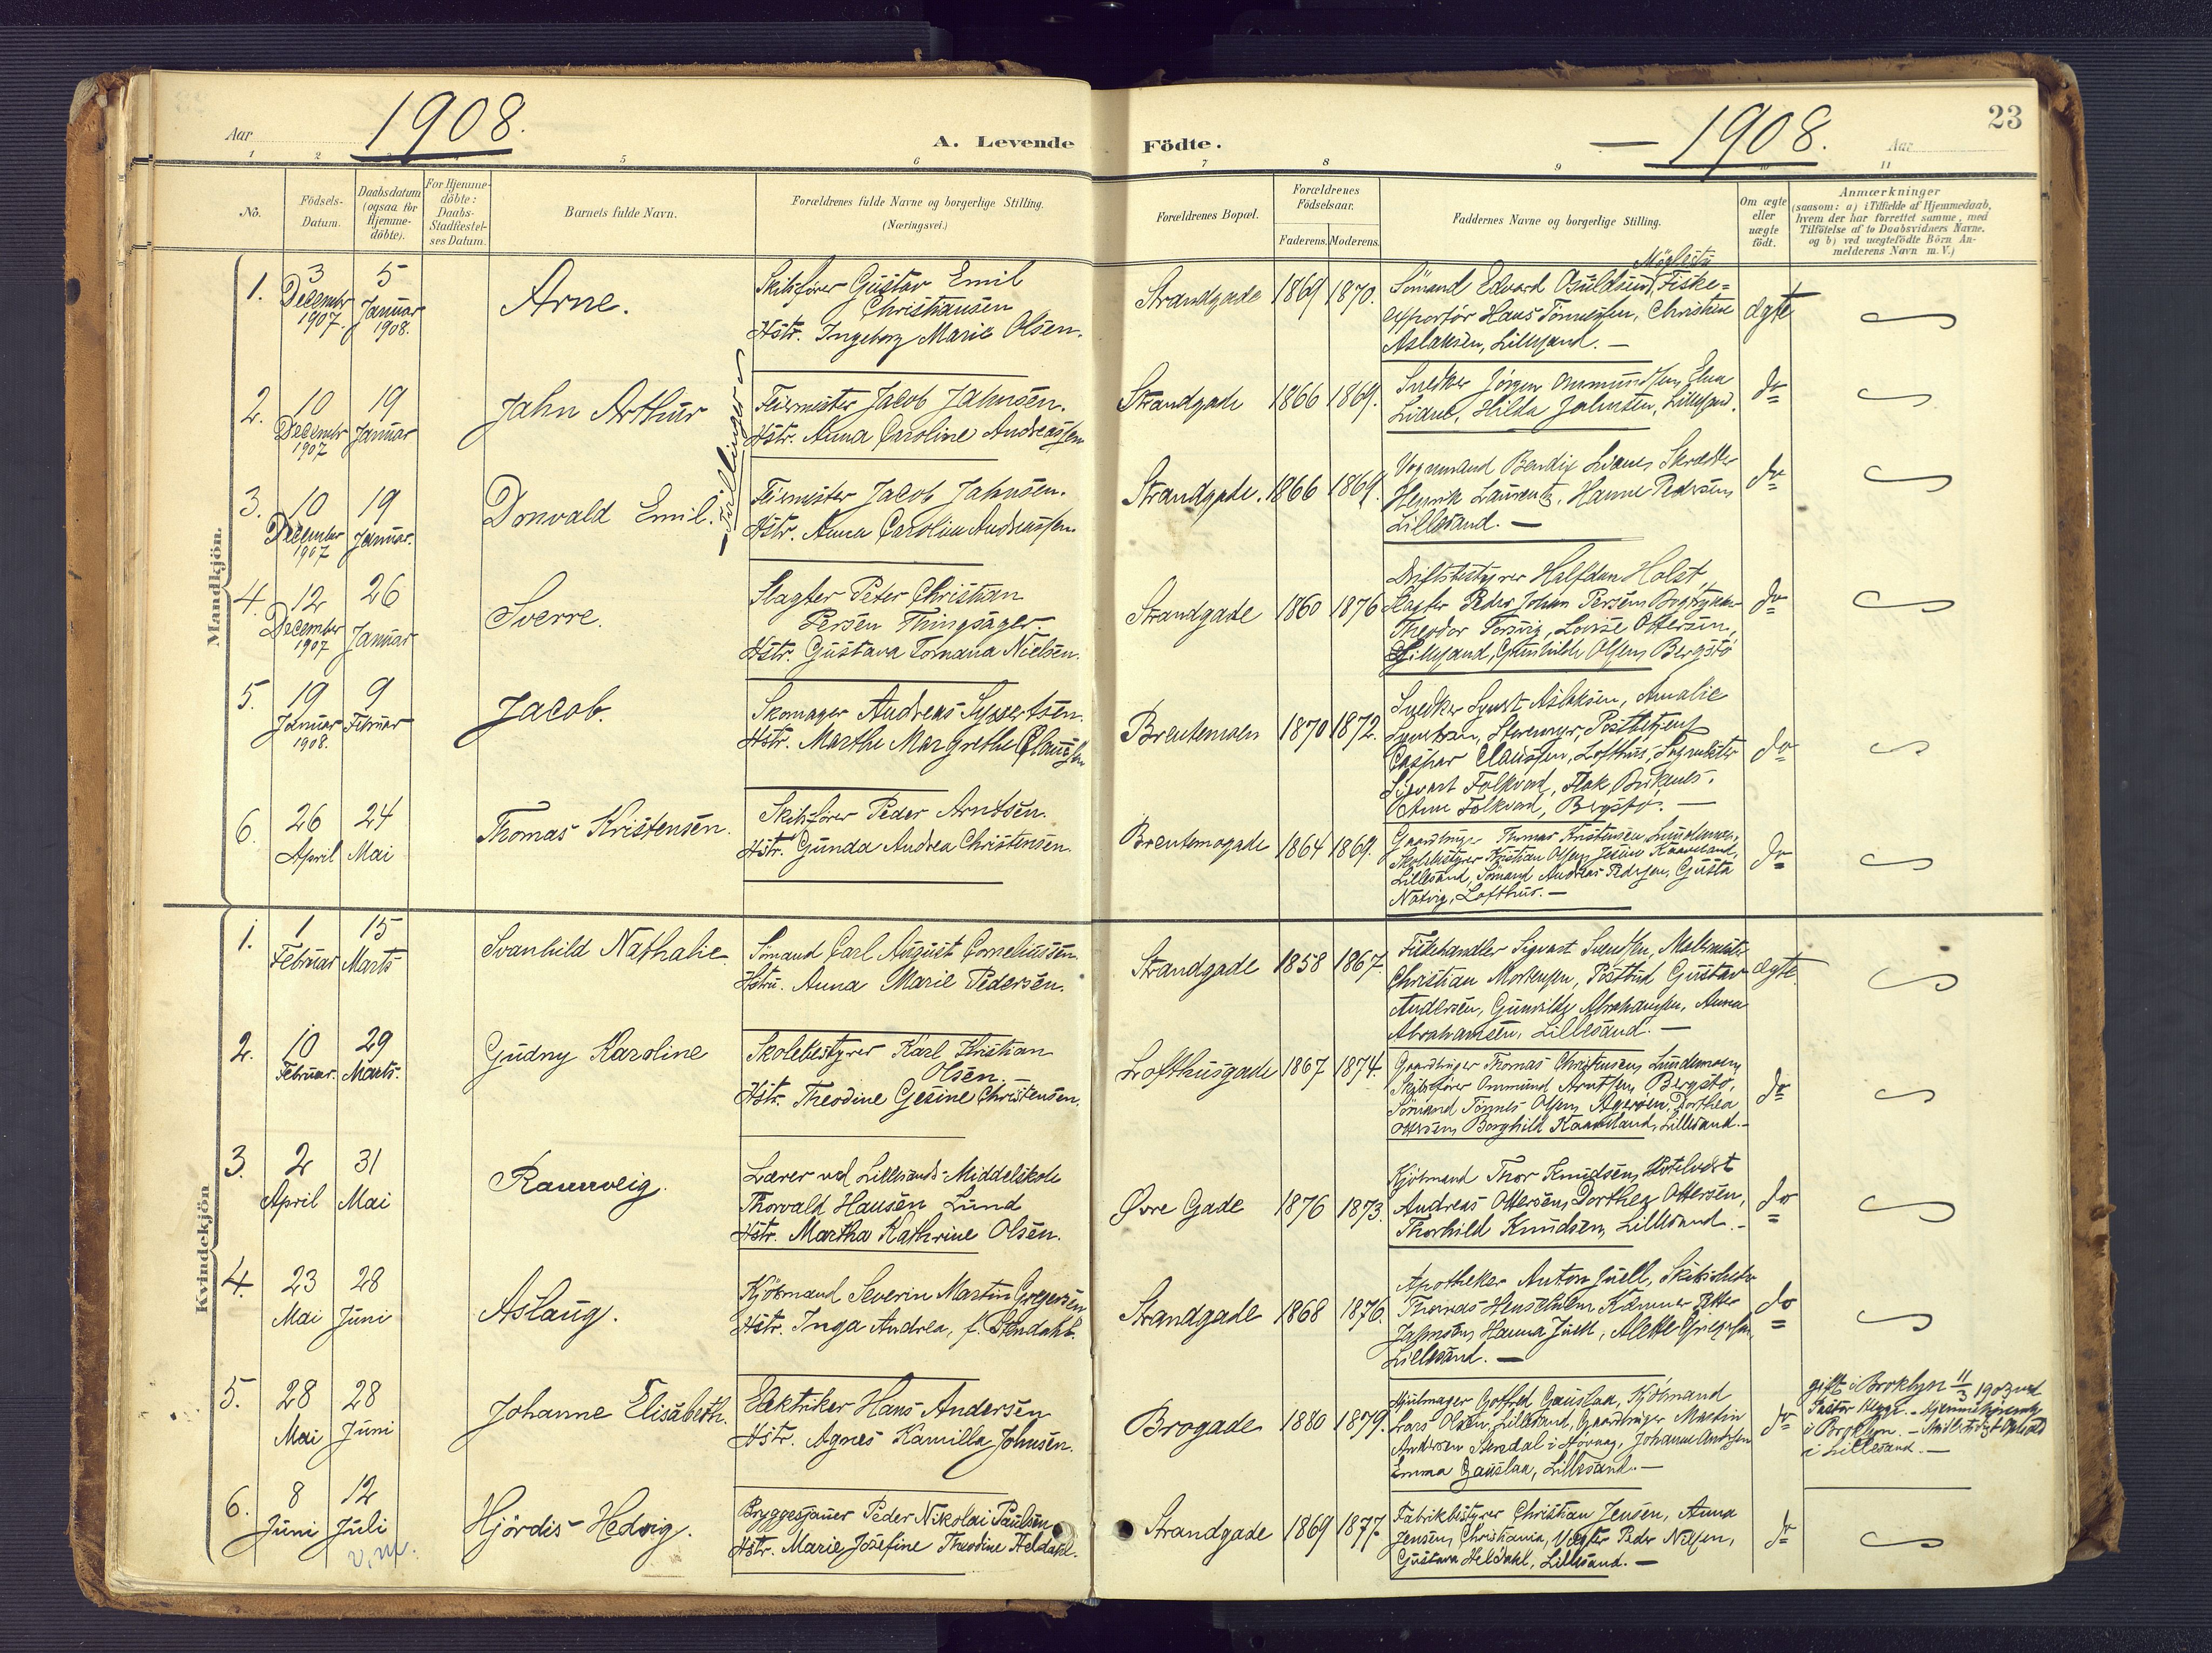 Aar 1908.
A. Levende
Födte.
— 1908.
Aar
23
1 2 3 4 5 6
7 8 9 10 11
No.
Födsels-
Datum.
Daabsdatum
(ogsaa for
Hjemme-
döbte).
For Hjemme-
döbte:
Daabs-
Stadfæstel-
ses Datum.
Barnets fulde Navn.
Forældrenes fulde Navne og borgerlige Stilling.
(Næringsvei.)
Forældrenes Bopæl.
Forældrenes
Födselsaar.
Faderens. Moderens.
Faddernes Navne og borgerlige Stilling.
Om ægte
eller
uægte
födt.
Anmærkninger
(saasom: a) i Tilfælde af Hjemmedaab,
hvem der har forrettet samme, med
Tilföielse af to Daabsvidners Navne.
og b) ved uægtefödte Börn An-
melderens Navn m. V.)
Mandkjön.
1.
3
December
1907.
5
Januar
1908.
Arne.
Skibsfører Gustav Emil
Christiansen
Hstr. Ingeborg Marie Olsen.
Strandgade
1869 1870.
Sömand Edvard Osuldsen, Fiske=
exportør Hans Tönnessen, Christine
Aslaksen, Lillesand. —
ægte
2.
10
December
1907
19
Januar
Jahn Arthur
Tvillinger
Feiermester Jacob Jahnsen.
Hstr. Anna Caroline Andreassen
Strandgade
1866 1869.
Snedker Jörgen Ommundsen, Elna
Hilda Jahnsen, Lillesand.
do
3.
10
December
1907
19
Januar.
Donvald Emil.
Feiermester Jacob Jahnsen.
Hstr. Anna Caroline Andreassen.
Strandgade.
1866 1869.
Vognmand Bendix Skrædder
Henrik Laurentz, Hanne Pedersen,
Lillesand. —
do
4.
12
December
1907
26
Januar
Sverre.
Slagter Peter Christian
Persen Thingsager.
Hstr. Gustava Tomana Nielsen.
Strandgade
1860 1876
Driftsbestyrer Halfdan Holst,
Slagter Peder Johan Persen, Bogtrykker
Theodor Torsvig, Lovise Ottersen,
Lillesand, Gunhilde Olsen, Bergstø
do
5.
19
Januar
1908.
9
Februar
Jacob.
Skomager Andreas Syvertsen.
Hstr. Marthe Margrethe Claussen
Brentemoen
1870 1872.
Snedker Syvert Aslaksen, Amalie
Caspar Claussen, Lofthus,
Sigvart Folkvard, Flak Birkenes.
Anne Folkvard, Bergstø. —
do
6.
26
April
24
Mai
Thomas Kristensen.
Skibsfører Peder Arntsen.
Hstr. Gunda Andrea Christensen.
Brentemogade
1864 1869.
Gaardbruger Thomas Kristensen, Lundemoen,
Skolebestyrer Kristian Olsen, Kaaveland,
Lillesand, Sömand Andreas Pedersen, Gusta
Natvig, Lofthus. —
do
Kvindekjön
1.
1
Februar
15
Marts
Svanhild Nathalie
Sömand Carl August Corneliussen.
Hstru. Anna Marie Pedersen.
Strandgade
1858 1867.
Fiskehandler Sigvart Svendsen,
Christian Mortensen, Postbud Gustav
Andersen, Gunvilde Abrahamsen, Anna
Abrahamsen, Lillesand. —
ægte.
2.
10
Februar.
29
Marts.
Gudny Karoline
Skolebestyrer Karl Kristian
Olsen
Hstr. Theodine Gesine Christensen.
Lofthusgade
1867 1874.
Gaardbruger Thomas Christensen, Lundemoen,
Skibsfører Ommund Arntsen, Bergstø,
Sömand Tönnes Olsen, Agerøen, Dorthea
Ottersen, Borghild Kaaveland, Lillesand. -
do
3.
2
April
31
Mai
Raunveig.
Lærer ved Lillesands Middelskole
Thorvald Hansen Lund
Hstr. Martha Kathrine Olsen.
Øvre Gade
1876 1873.
Kjöbmand Thor Knudsen, Hotelvert
Andreas Ottersen, Dorthea Ottersen,
Thorhild Knudsen, Lillesand. -
do
4.
23
Mai
28
Juni
Aslaug.
Kjöbmand Severin Martin Gregersen
Hstr. Inga Andrea, f. Stendahl.
Strandgade
1868 1876.
Apotheker Anton Juell, Skibsreder
Thomas Henschelm, Kæmner Peter
Jahnsen, Hanna Juell, Alette
Lillesand. —
do
5.
28
Mai
28
Juni
Johanne Elisabeth.
Elektriker Hans Andersen
Hstr. Agnes Kamilla Johnsen.
Brogade
1880 1879.
Hjulmager Gotfred Gauslaa, Kjöbmand
Lars Olsen, Lillesand, Gaardbruger Martin
Andersen Stredal i Høvaag, Johanne Andersen
Emma Gauslaa, Lillesand. —
do
gift i Broklyn 11/3 1903 ved
Pastor
i Broklyn. —
i Lillesand. —
6.
8
Juni
12
Juli
Hjördis-Hedvig.
Bryggesjauer Peder Nikolai Paulsen
Hstr. Marie Josefine Theodine Heldahl.
Strandgade
1869 1877.
Fabrikbestyrer Christian Jensen, Anna
Jensen, Christiania, Vægter Peder Nilsen,
Gustava Heldahl, Lillesand. —
do